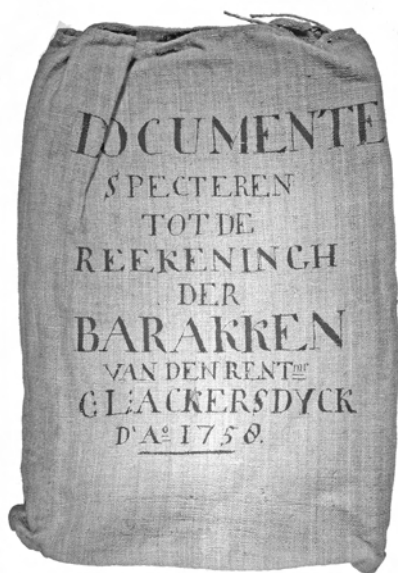 DOCUMENTE
SPECTEREN
TOT DE
REEKENINGH
DER
BARAKKEN
VAN DEN RENTmr
C: L: ACKERSDYCK
D' Ao 1758.